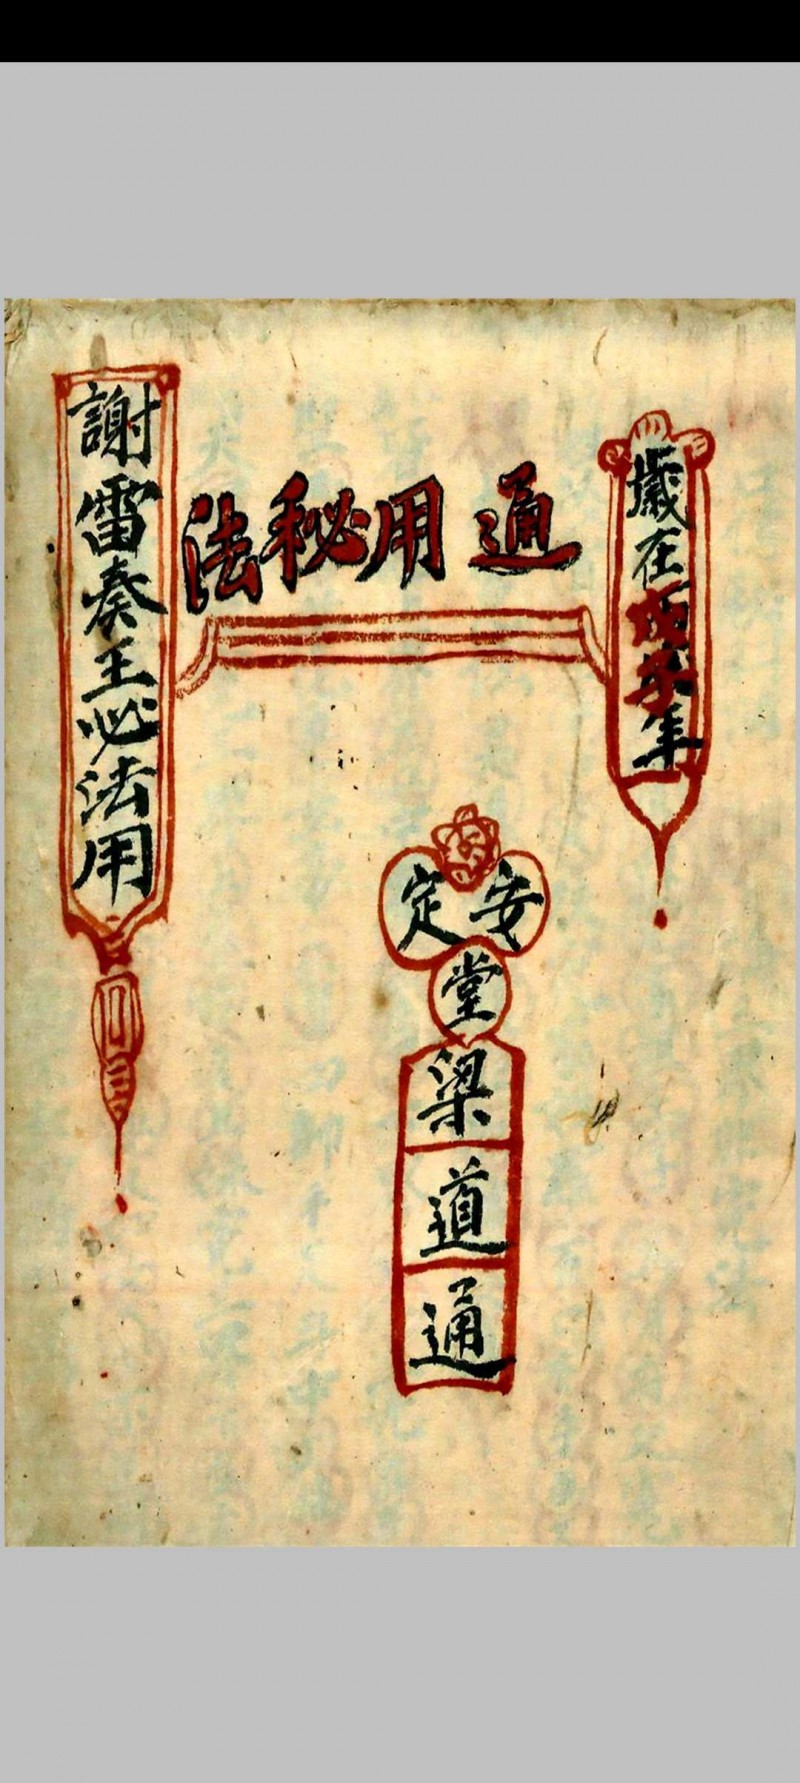 歲在年
通用秘法
安定
堂
梁道通
謝雷奏王必法用